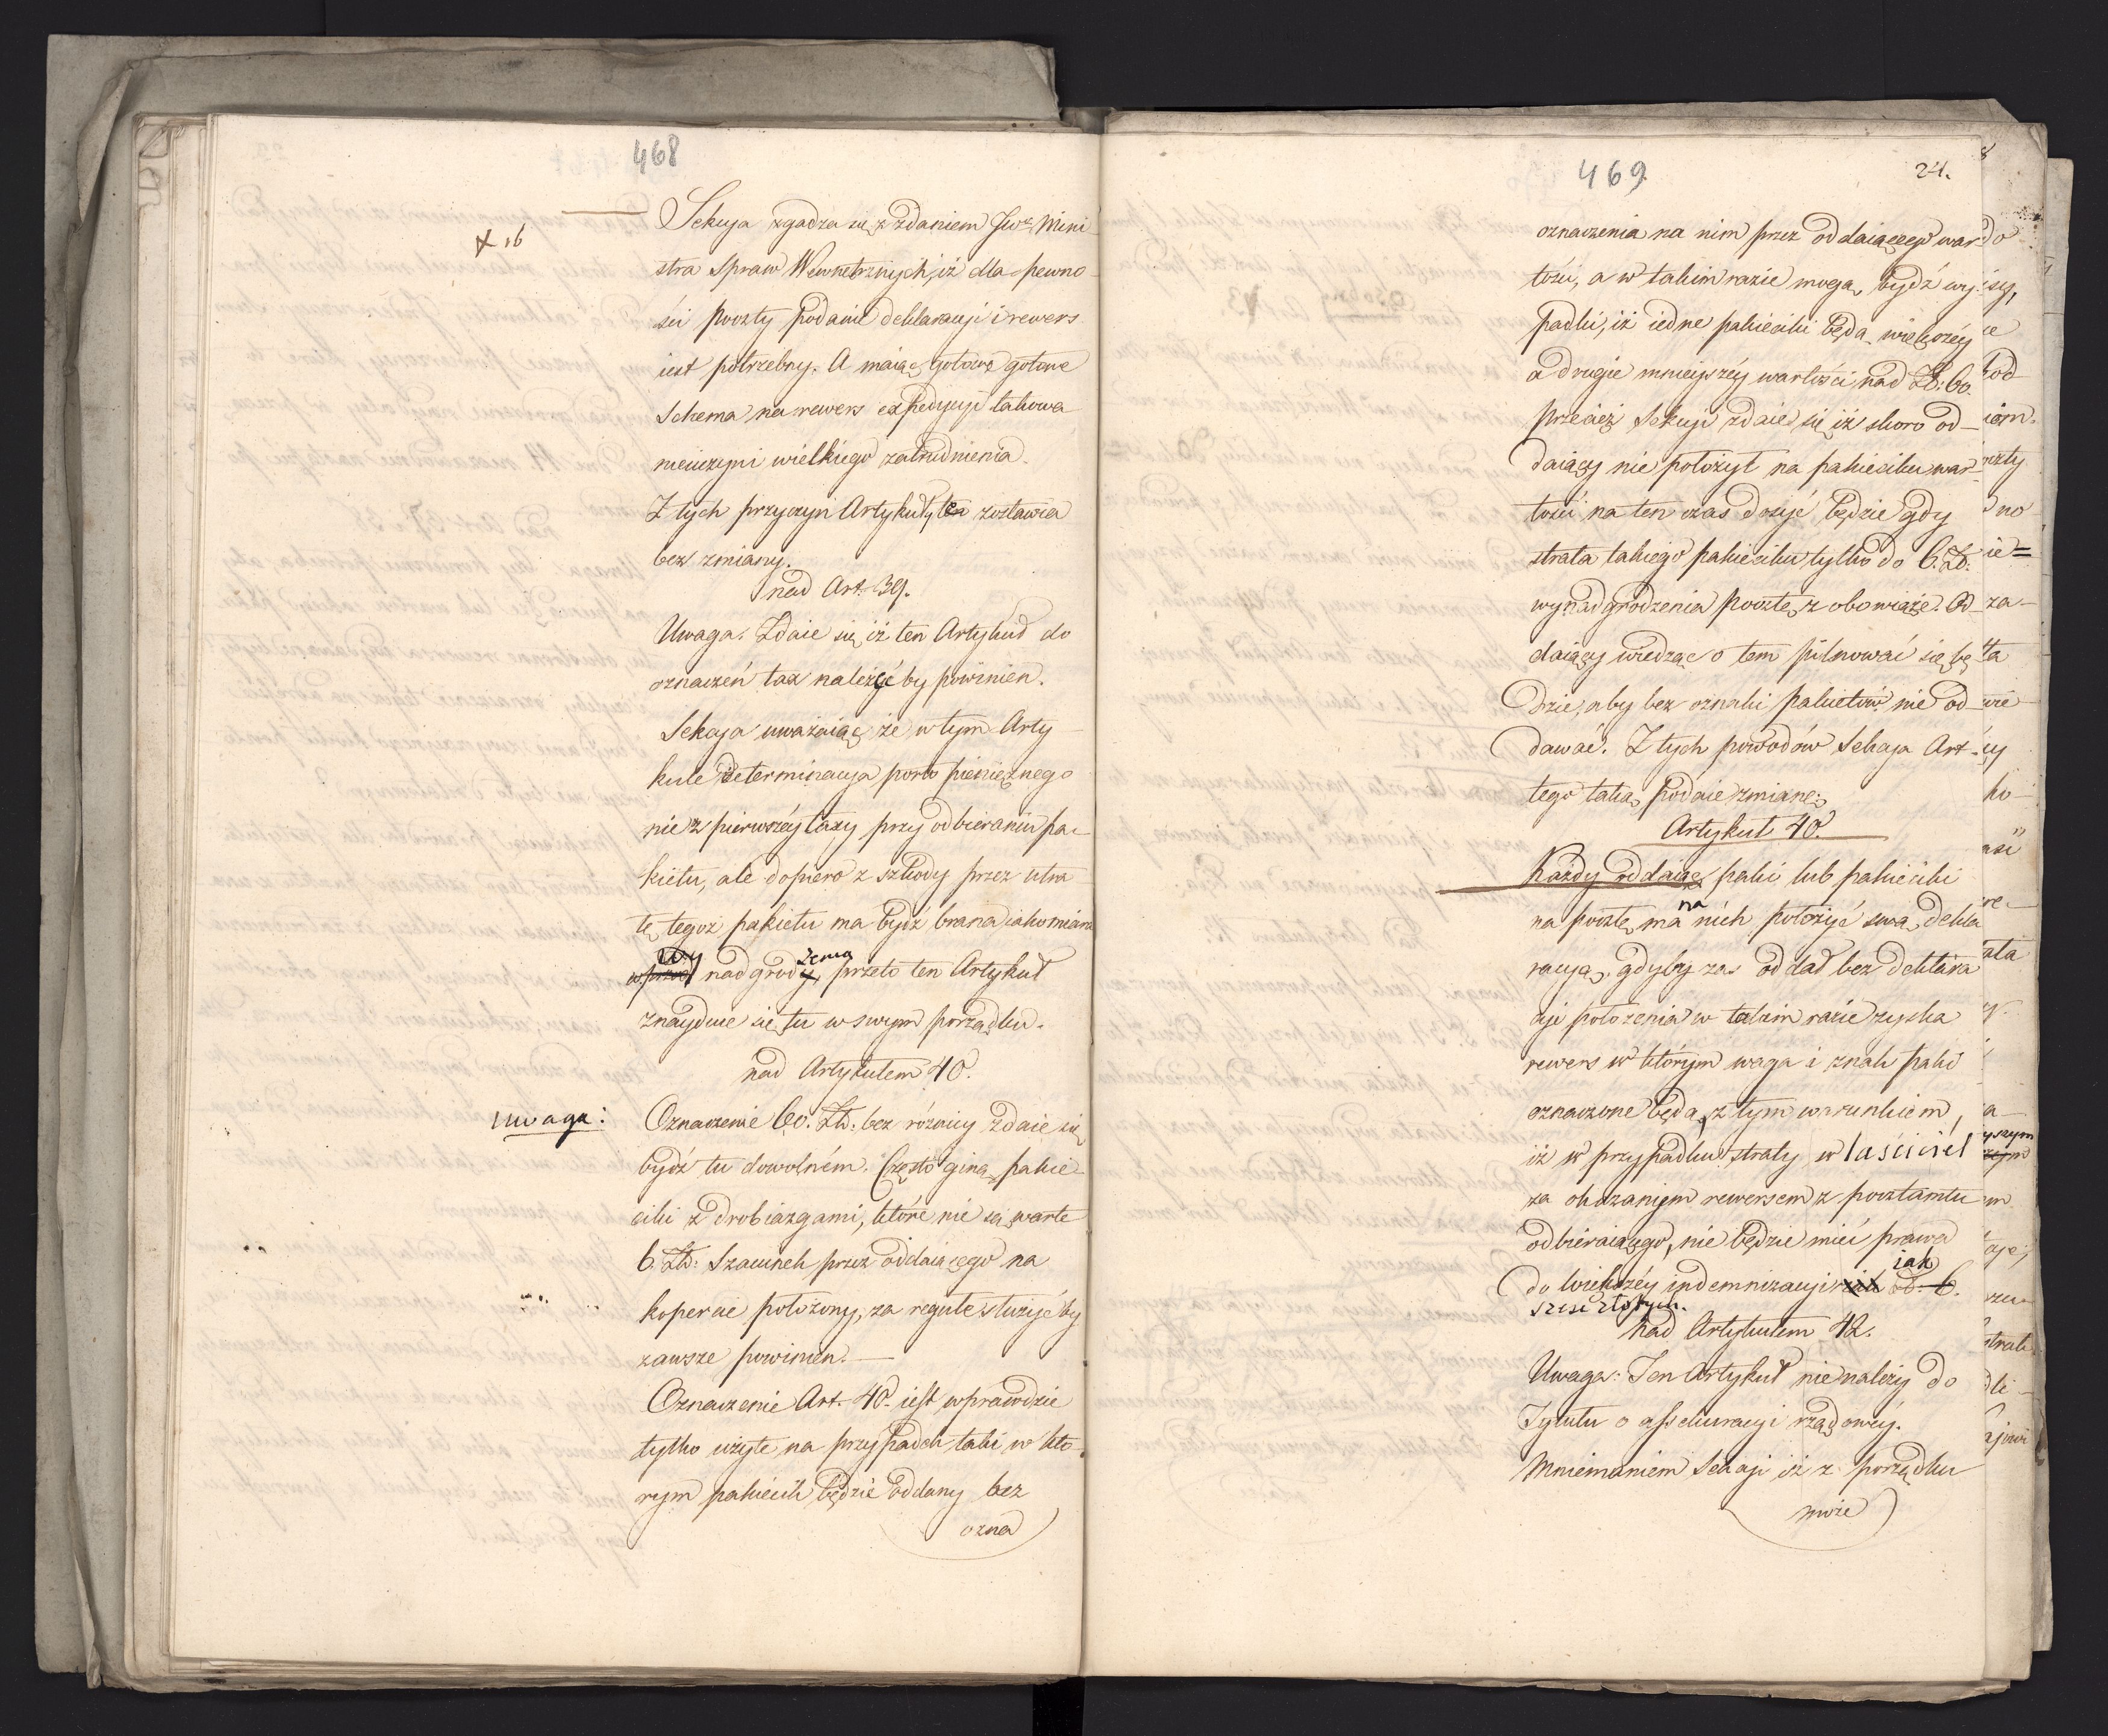 468
+ 16
Sekcya zgadza się z zdaniem JWo Mini
stra Spraw Wewnetrznych, iż dla pewno-
ści poczty podanie deklaracyi i rewers
iest potrzebny. A maiąc gotowe
Schema na rewers expedycyi takowa
nieuczyni wielkiego zatrudnienia.
Z tych przyczyn Artykuł ten zostawia
bez zmiany.
nad Art. 39.
Uwaga. Zdaie się iż ten Artykuł do
oznaczeń tax należeć by powinien.
Sekcya uważaiąc że w tym Arty
kule determinacya porto pieniężnego
nie z pierwszéy taxy przy odbieraniu pa-
kietu, ale dopiero z szkody przez utra
tę tegoż pakietu ma bydź brana iako miara
wynadgrodzenia przeto ten Artykuł
znayduie się tu w swym porządku.
nad Artykułem 40.
uwaga:
Oznaczenie 60. Zł. bez różnicy zdaie się
bydź tu dowolném. Często giną pakie-
ciki z drobiazgami, które nie są warte
6. Zł: Szacunek przez oddaiącego na
kopercie położony, za regułę służyć by
zawsze powinien. —
Oznaczenie Art. 40. iest wprawdzie
tylko użyte na przypadek taki w któ-
rym pakiecik będzie oddany bez
ozna
469
24.
oznaczenia na nim przez oddaiącego war
tości, a w takim razie mogą bydź wy-
padki, iż iedne pakieciki będą większéy
a drugie mnieyszéy wartości nad Zł: 60.
przecież Sekcyi zdaie się iż skoro od-
daiący nie położył na pakieciku war-
tości na ten czas dosyć będzie gdy
strata takiego pakieciku tylko do 6. Zł.
wynadgrodzenia pocztę zobowiąże. Od-
daiący wiedząc o tem pilnować się bę
dzie, aby bez oznaki pakietów nie od-
dawać. Z tych powodów Sekcya Art.
tego taką podaie zmianę:
Artykuł 40.
Każdy oddaiąc paki lub pakieciki
na pocztę ma na nich położyć swą dekla
racyą, gdyby zaś oddał bez deklara
cyi położenia w takim razie zyska
rewers w którym waga i znak paki
oznaczone będą z tym warunkiem,
iż w przypadku straty właściciel
za okazaniem rewersem z pocztamtu
odbieraiącego, nie będzie mieć prawa
do większéy indemnizacyi iak
sześć złotych.
nad Artykułem 42.
Uwaga: Ten Artykuł nie należy do
Tytułu o assekuracyi rządowéy.
Mniemaniem Sekcyi iż z porządku
może